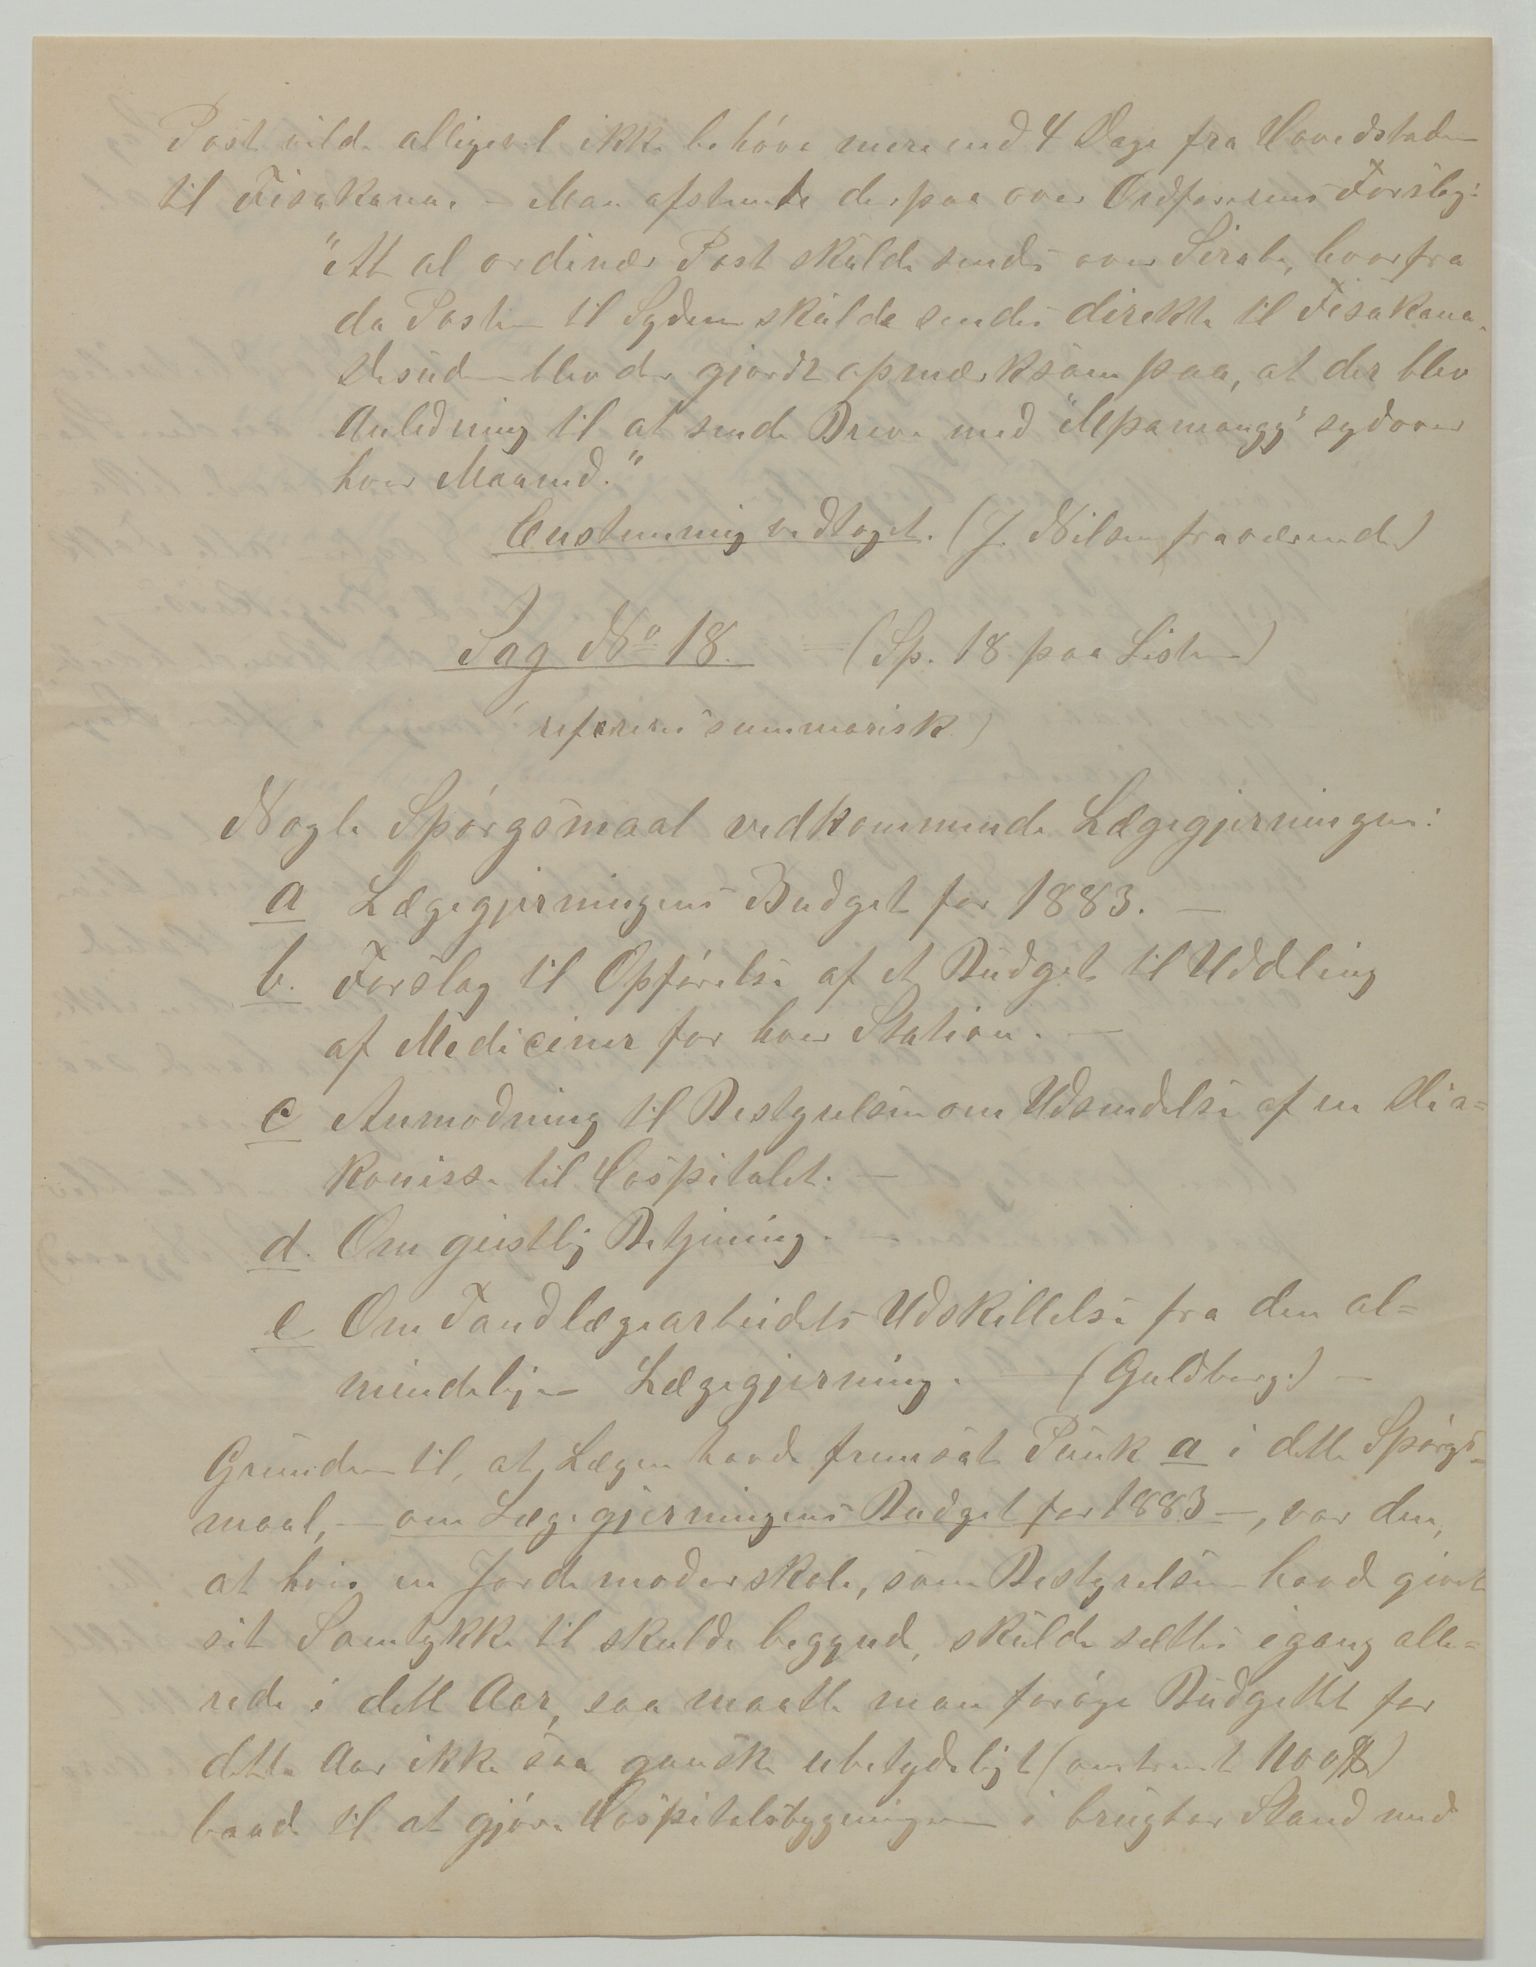 Post vilde alligevel ikke behöve mere end 4 Dage fra Hovedstaden
til Fisakana. – Man afstemte derpaa over Ordførerens Forslag:
"At al ordinær Post skulde sendes over Sirabe, hvorfra
da Posten til Syden skulde sendes direkte til Fisakana.
Desuden blev der gjordt opmærksom paa, at der blev
Anledning til at sende Breve med "Mpamangy" sydover
hver Maaned."
Eenstemmig vedtaget. (J. Nilsen fraværende)
Sag No 18. = (Sp. 18 paa Listen)
(refereres summarisk)
Nogle Spörgsmaal vedkommende Lægegjerningen:
a Lægegjerningens Budget for 1883. –
b. Forslag til Opförelse af et Budget til Uddeling
af Mediciner for hver Station. –
c Anmodning til Bestyrelsen om Udsendelse af en Dia=
konisse til Hospitalet. –
d. Om geistlig Betjening. –
e Om Tandlægearbeidets Udskillelse fra den al=
mindelige Lægegjerning. – (Guldberg.) –
Grunden til, at Lægen havde fremsat Punk a i dette Spörgs=
maal, – om Lægegjerningens Budget for 1883 –, var den,
at hvis en Jordemoderskole, som Bestyrelsen havde givet
sit Samtykke til skulde begynde, skulde sættes igang alle=
rede i dette Aar, saa maatte man foröge Budgettet for
dette Aar ikke saa ganske ubetydeligt (omtrent 1100 $)
baade til at gjöre Hospitalsbygningen i brugbar Stand med